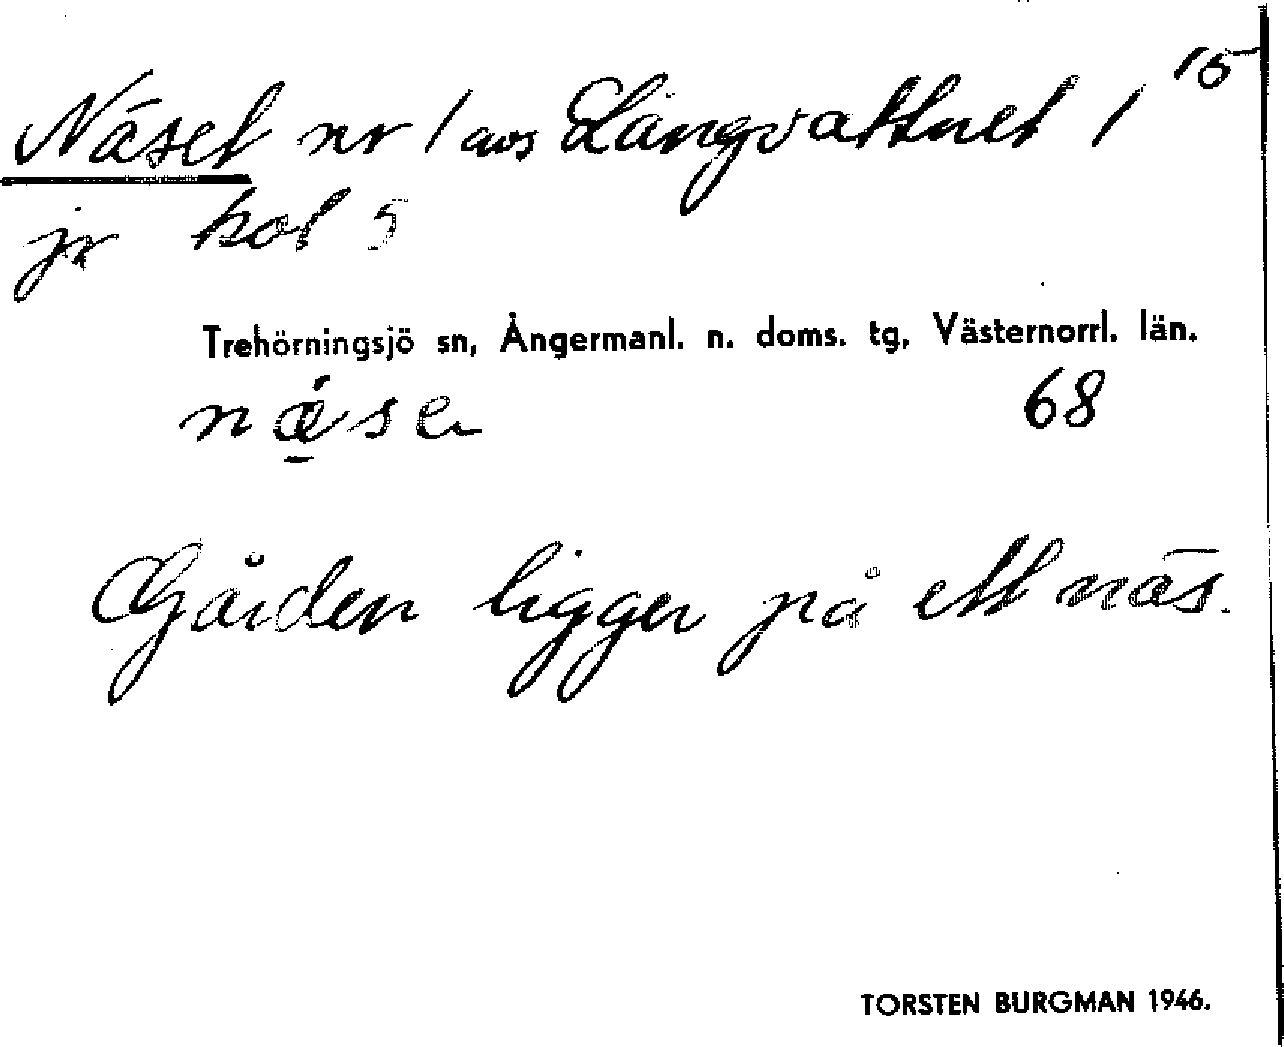 Näset nr 1 avs Långvattnet 1 15
jr kol 5
Trehörningsjö sn, Ångermanl. n. doms. tg, Västernorrl. län.
nǽ̱se 68
Gården ligger på ett näs.
TORSTEN BURGMAN 1946.